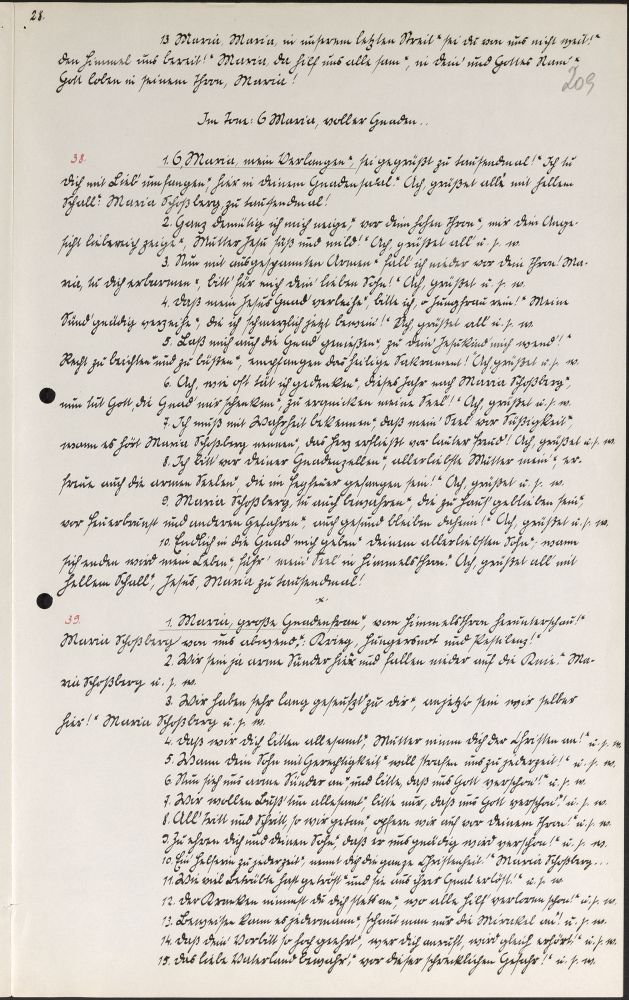 28.
13 Maria, Maria, in unserem letzten Streit * sei du von uns nicht weit! *
den Himmel uns bereit! * Maria, da hilf uns alle sam *, in dein' und Gottes Nam' *
Gott loben in seinem Thron, Maria!
209
Im Tone: O Maria, voller Gnaden..
38. 1. O, Maria, mein Verlangen *, sei gegrüßt zu tausendmal! * Ich tu
dich mit Lieb' umfangen *, hier in deinem Gnadensaal.* Ach, grüßet alle mit hellem
Schall: * Maria Schoßberg zu tausendmal!
2. Ganz demütig ich mich neige *, vor dein' hohen Thron *, mir dein Ange-
sicht liebreich zeige *, Mutter Jesu süß und mild! * Ach, grüßet all' u. s. w.
3. Nun mit ausgespannten Armen * fall' ich nieder vor dein' Thron! Ma-
ria, tu dich erbarmen *, bitt' für mich dein' lieben Sohn! * Ach, grüßet u. s. w.
4. Daß mein Jesus Gnad' verleihe *, bitte ich, o Jungfrau rein! * Meine
Sünd' gnädig verzeihe *, die ich schmerzlich jetzt bewein'! * Ach, grüßet all' u. s. w.
5. Laß mich auch die Gnad' genießen *, zu dein' Jesukind mich wend'! *
Recht zu beichten * und zu büßen *, empfangen das heilige Sakrament! * Ach, grüßet u. s. w.
6. Ach, wie oft tat ich gedenken *, dieses Jahr nach Maria Schoßberg *,
nun tut Gott, die Gnad' mir schenken *, zu erquicken meine Seel'! * Ach, grüßet u. s. w.
7. Ich muß mit Wahrheit bekennen *, daß mein' Seel' vor Süßigkeit *,
wann es hört Maria Schoßberg nennen *, das Herz erfließt vor lauter Freud'! Ach, grüßet u. s. w.
8. Ich bitt' vor deiner Gnadenzellen *, allerliebste Mutter mein *, er-
freue auch die armen Seelen *, die im Fegfeuer gefangen sein! * Ach, grüßet u. s. w.
9. Maria Schoßberg, tu auch bewahren *, die zu Haus' geblieben sein *,
vor Feuerbrunst und anderen Gefahren *, auch gesund bleiben daheim! * Ach, grüßet u. s. w.
10. Endlich in die Gnad' mich geben * deinem allerliebsten Sohn *, wann
sich enden wird mein Leben *, führ' mein' Seel' in Himmelsthron.* Ach, grüßet all' mit
hellem Schall *, Jesus, Maria zu tausendmal!
39. 1. Maria, große Gnadenfrau *, vom Himmelsthron herunterschau! *
Maria Schoßberg von uns abwend': * Krieg, Hungersnot und Pestilenz! *
2. Wir sein ja arme Sünder hier * und fallen nieder auf die Knie.* Ma-
ria Schoßberg u. s. w.
3. Wir haben sehr lang geseufzt zu dir *, anjetzo sein wir selber
hier! * Maria Schoßberg u. s. w.
4. Daß wir dich bitten allesamt *, Mutter nimm dich der Christen an! * u. s. w.
5. Wann dein Sohn mit Gerechtigkeit * will strafen uns zu jederzeit! * u. s. w.
6. Nun sich uns arme Sünder an * und bitte, daß uns Gott verschon'! * u. s. w.
7. Wir wollen Buß' tun allesamt *, bitte nur, daß uns Gott verschon'! * u. s. w.
8. All' Tritt und Schritt, so wir getan *, opfern wir auf vor deinem Thron! * u. s. w.
9. Zu ehren dich und deinen Sohn *, daß er uns gnädig wird verschon'! * u. s. w.
10. Ein' Helferin zu jederzeit *, nennt dich die ganze Christenheit! * Maria Schoßberg...
11. Wie viel Betrübte hast getröst' * und sie aus ihrer Qual erlöst! * u. s. w.
12. Der Kranken nimmst du dich stets an *, wo alle Hilf' verloren schon! * u. s. w.
13. Beweisen kann es jedermann *, schaut man nur die Mirakel an! * u. s. w.
14. Daß dein' Vorbitt' so hoch geehrt *, wer dich anruft, wird gleich erhört! * u. s. w.
15. Das liebe Vaterland bewahr' *, vor dieser schrecklichen Gefahr! * u. s. w.